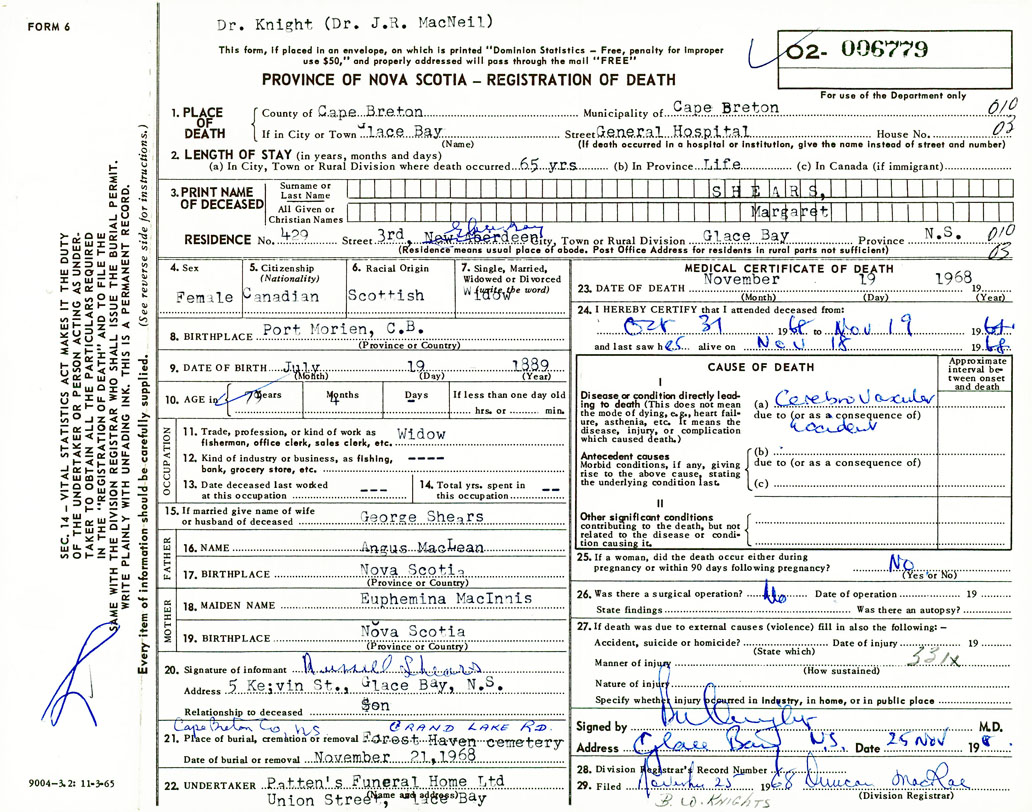 FORM 6
Dr. Knight (Dr. J.R. MacNeil)
This form, if placed in an envelope, on which is printed "Dominion Statistics – Free, penalty for improper
use $50," and properly addressed will pass through the mail "FREE"
PROVINCE OF NOVA SCOTIA – REGISTRATION OF DEATH
02- 006779
For use of the Department only
1. PLACE OF DEATH
County of Cape Breton Municipality of Cape Breton 010
If in City or Town Glace Bay Street General Hospital House No. 03
(Name) (If death occurred in a hospital or institution, give the name instead of street and number)
2. LENGTH OF STAY (in years, months and days)
(a) In City, Town or Rural Division where death occurred 65 yrs (b) In Province Life (c) In Canada (if immigrant)
3. PRINT NAME OF DECEASED
Surname or Last Name SHEARS,
All Given or Christian Names Margaret
RESIDENCE No. 429 Street 3rd, New Aberdeen Glace Bay City, Town or Rural Division Glace Bay Province N.S. 010
(Residence means usual place of abode. Post Office Address for residents in rural parts not sufficient) 03
4. Sex Female
5. Citizenship (Nationality) Canadian
6. Racial Origin Scottish
7. Single, Married, Widowed or Divorced (write the word) Widow
8. BIRTHPLACE Port Morien, C.B.
(Province or Country)
9. DATE OF BIRTH July 19 1889
(Month) (Day) (Year)
10. AGE in 79 Years 4 Months Days If less than one day old
hrs. or min.
OCCUPATION
11. Trade, profession, or kind of work as fisherman, office clerk, sales clerk, etc. Widow
12. Kind of industry or business, as fishing, bank, grocery store, etc. ----
13. Date deceased last worked at this occupation ---
14. Total yrs. spent in this occupation --
15. If married give name of wife or husband of deceased George Shears
FATHER
16. NAME Angus MacLean
17. BIRTHPLACE Nova Scotia
(Province or Country)
MOTHER
18. MAIDEN NAME Euphemina MacInnis
19. BIRTHPLACE Nova Scotia
(Province or Country)
20. Signature of informant Russell Shears
Address 5 Ke;vin St., Glace Bay, N.S.
Relationship to deceased Son
Cape Breton Co NS GRAND LAKE RD.
21. Place of burial, cremation or removal Forest Haven cemetery
Date of burial or removal November 21,1968
22. UNDERTAKER Patten's Funeral Home Ltd
(Name and address)
Union Street, Glace Bay
MEDICAL CERTIFICATE OF DEATH
23. DATE OF DEATH November 19 1968 19
(Month) (Day) (Year)
24. I HEREBY CERTIFY that I attended deceased from:
Oct 31 1968 to Nov 19 1968
and last saw her alive on Nov 18 1968
CAUSE OF DEATH
Approximate interval between onset and death
I
Disease or condition directly leading to death (This does not mean the mode of dying, e.g., heart failure, asthenia, etc. It means the disease, injury, or complication which caused death.)
(a) Cerebro Vascular
due to (or as a consequence of)
accident
Antecedent causes
Morbid conditions, if any, giving rise to the above cause, stating the underlying condition last.
(b)
due to (or as a consequence of)
(c)
II
Other significant conditions contributing to the death, but not related to the disease or condition causing it.
25. If a woman, did the death occur either during
pregnancy or within 90 days following pregnancy? No
(Yes or No)
26. Was there a surgical operation? No Date of operation 19
State findings Was there an autopsy?
27. If death was due to external causes (violence) fill in also the following:–
Accident, suicide or homicide? Date of injury 19
(State which) 331X
Manner of injury
(How sustained)
Nature of injury
Specify whether injury occurred in industry, in home, or in public place
Signed by M.D.
Address Glace Bay N.S. Date 25 Nov 196
28. Division Registrar's Record Number
29. Filed November 25 1968 Duncan MacRae
(Division Registrar)
B W. KNIGHTS
SEC. 14 – VITAL STATISTICS ACT MAKES IT THE DUTY
OF THE UNDERTAKER OR PERSON ACTING AS UNDER-
TAKER TO OBTAIN ALL THE PARTICULARS REQUIRED
IN THE "REGISTRATION OF DEATH" AND TO FILE THE
SAME WITH THE DIVISION REGISTRAR WHO SHALL ISSUE THE BURIAL PERMIT.
WRITE PLAINLY WITH UNFADING INK. THIS IS A PERMANENT RECORD.
Every item of information should be carefully supplied. (See reverse side for instructions.)
9004-3.2: 11-3-65